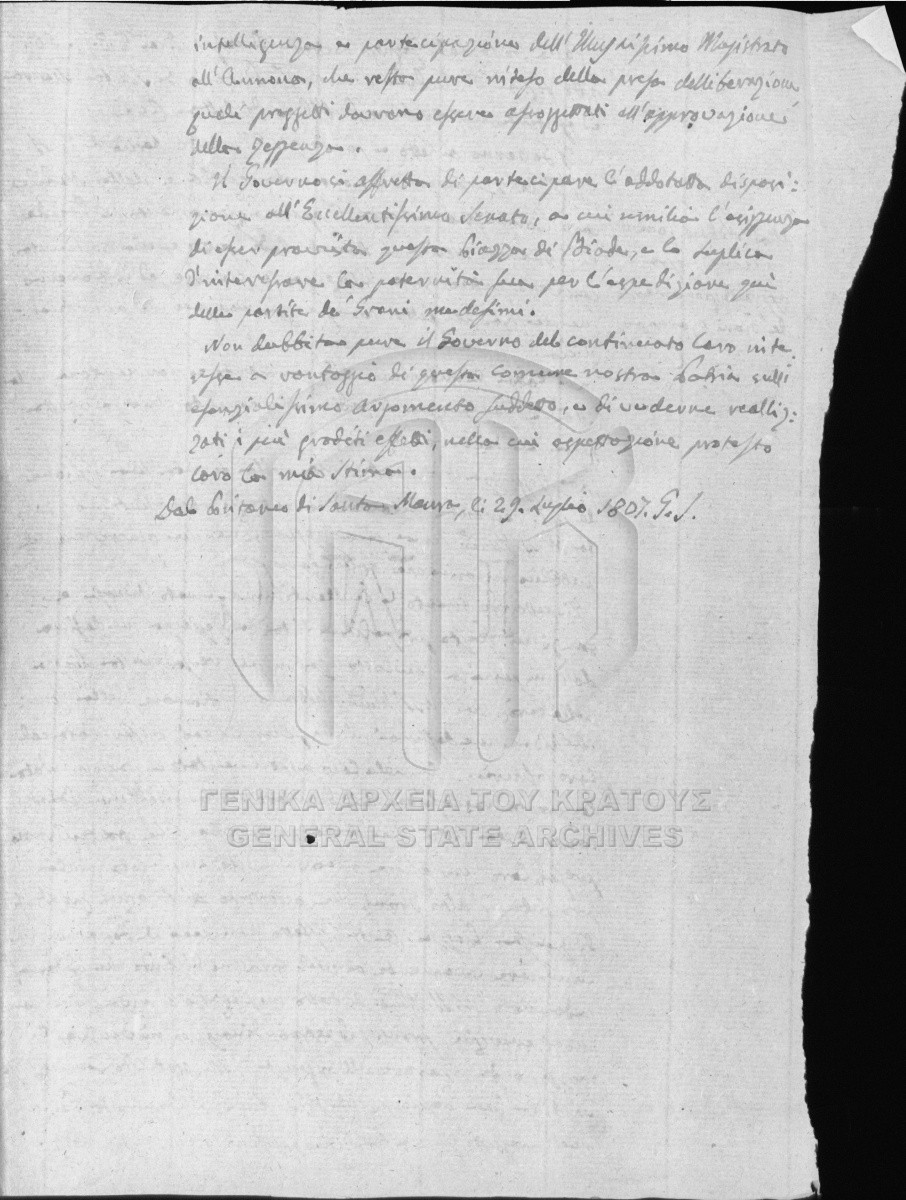 intelligenza e partecipazione dell'Illustrissimo Magistrato
all'Annona, che resta pure inteso della presa delliberazione
quali proggetti dovranno essere assoggettati all'approvazione
della Reggenza.
Il Governo si affretta di partecipare l'addotatta disposi:
zione all'Eccellentissimo Senato, a cui umilia l'esiggenza
di esser provista questa Piazza di Biade, e lo suplica
d'interessare la paternità sua per l'espedizione quì
delle partite de' Grani medesimi.
Non dubbita pure il Governo del continuato Loro inte
resse a vantaggio di questa comune nostra Patria sull'
essenzialissimo argomento suddetto, e di vederne realliz:
zati i più graditi effetti, nella cui aspettazione protesto
Loro la mia stima.
Dal Pritaneo di Santa Maura, li 29. Luglio 1807. S.
ΓΕΝΙΚΑ ΑΡΧΕΙΑ ΤΟΥ ΚΡΑΤΟΥΣ
GENERAL STATE ARCHIVES